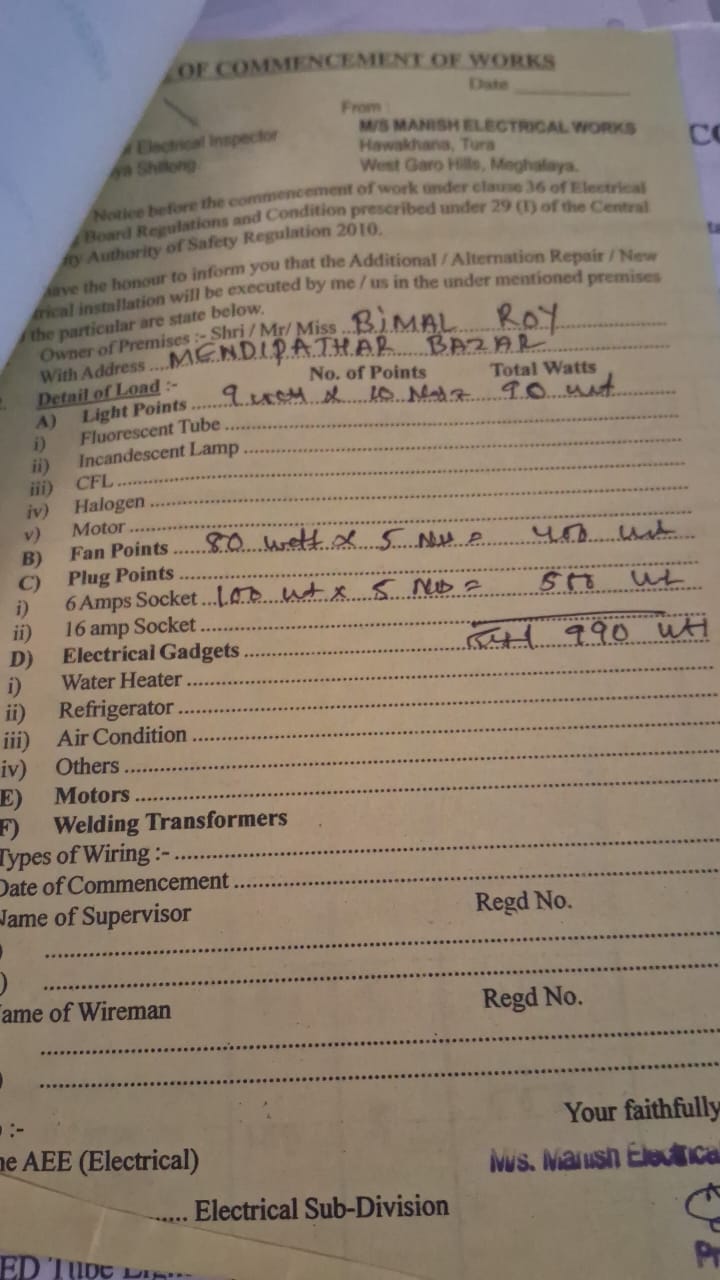 OF COMMENCEMENT OF WORKS
Date
From :
Electrical Inspector
M/S MANISH ELECTRICAL WORKS
ya Shillong
Hawakhana, Tura
West Garo Hills, Meghalaya.
Notice before the commencement of work under clause 36 of Electrical
Board Regulations and Condition prescribed under 29 (1) of the Central
ty Authority of Safety Regulation 2010.
have the honour to inform you that the Additional / Alternation Repair / New
trical installation will be executed by me / us in the under mentioned premises
the particular are state below.
Owner of Premises :- Shri / Mr/ Miss BIMAL ROY
With Address MENDIPATHAR BAZAR
Detail of Load :- No. of Points Total Watts
A) Light Points 9 10 90
i) Fluorescent Tube
ii) Incandescent Lamp
iii) CFL
iv) Halogen
v) Motor
B) Fan Points 80 watt x 5 = 400
C) Plug Points
i) 6 Amps Socket 100 x 5 = 500
ii) 16 amp Socket
D) Electrical Gadgets 990
i) Water Heater
ii) Refrigerator
iii) Air Condition
iv) Others
E) Motors
F) Welding Transformers
Types of Wiring :-
Date of Commencement
Name of Supervisor Regd No.
)
)
ame of Wireman Regd No.
)
:-
Your faithfully
he AEE (Electrical)
M/s. Manish Electrica
Electrical Sub-Division
P
ED Tube